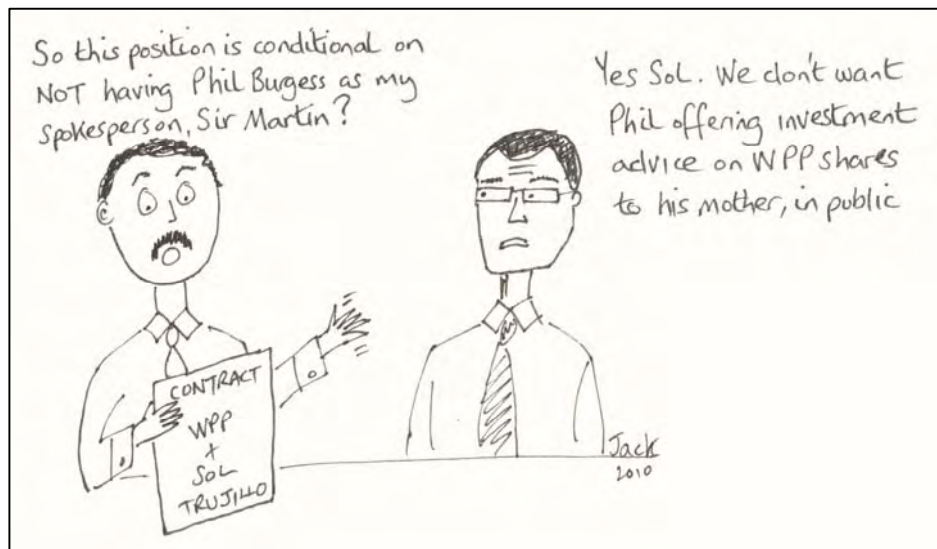 So this position is conditional on
NOT having Phil Burgess as my
spokesperson, Sir Martin?
Yes Sol. We don't want
Phil offering investment
advice on WPP shares
to his mother, in public
CONTRACT
WPP
+
SOL
TRUJILLO
Jack
2010